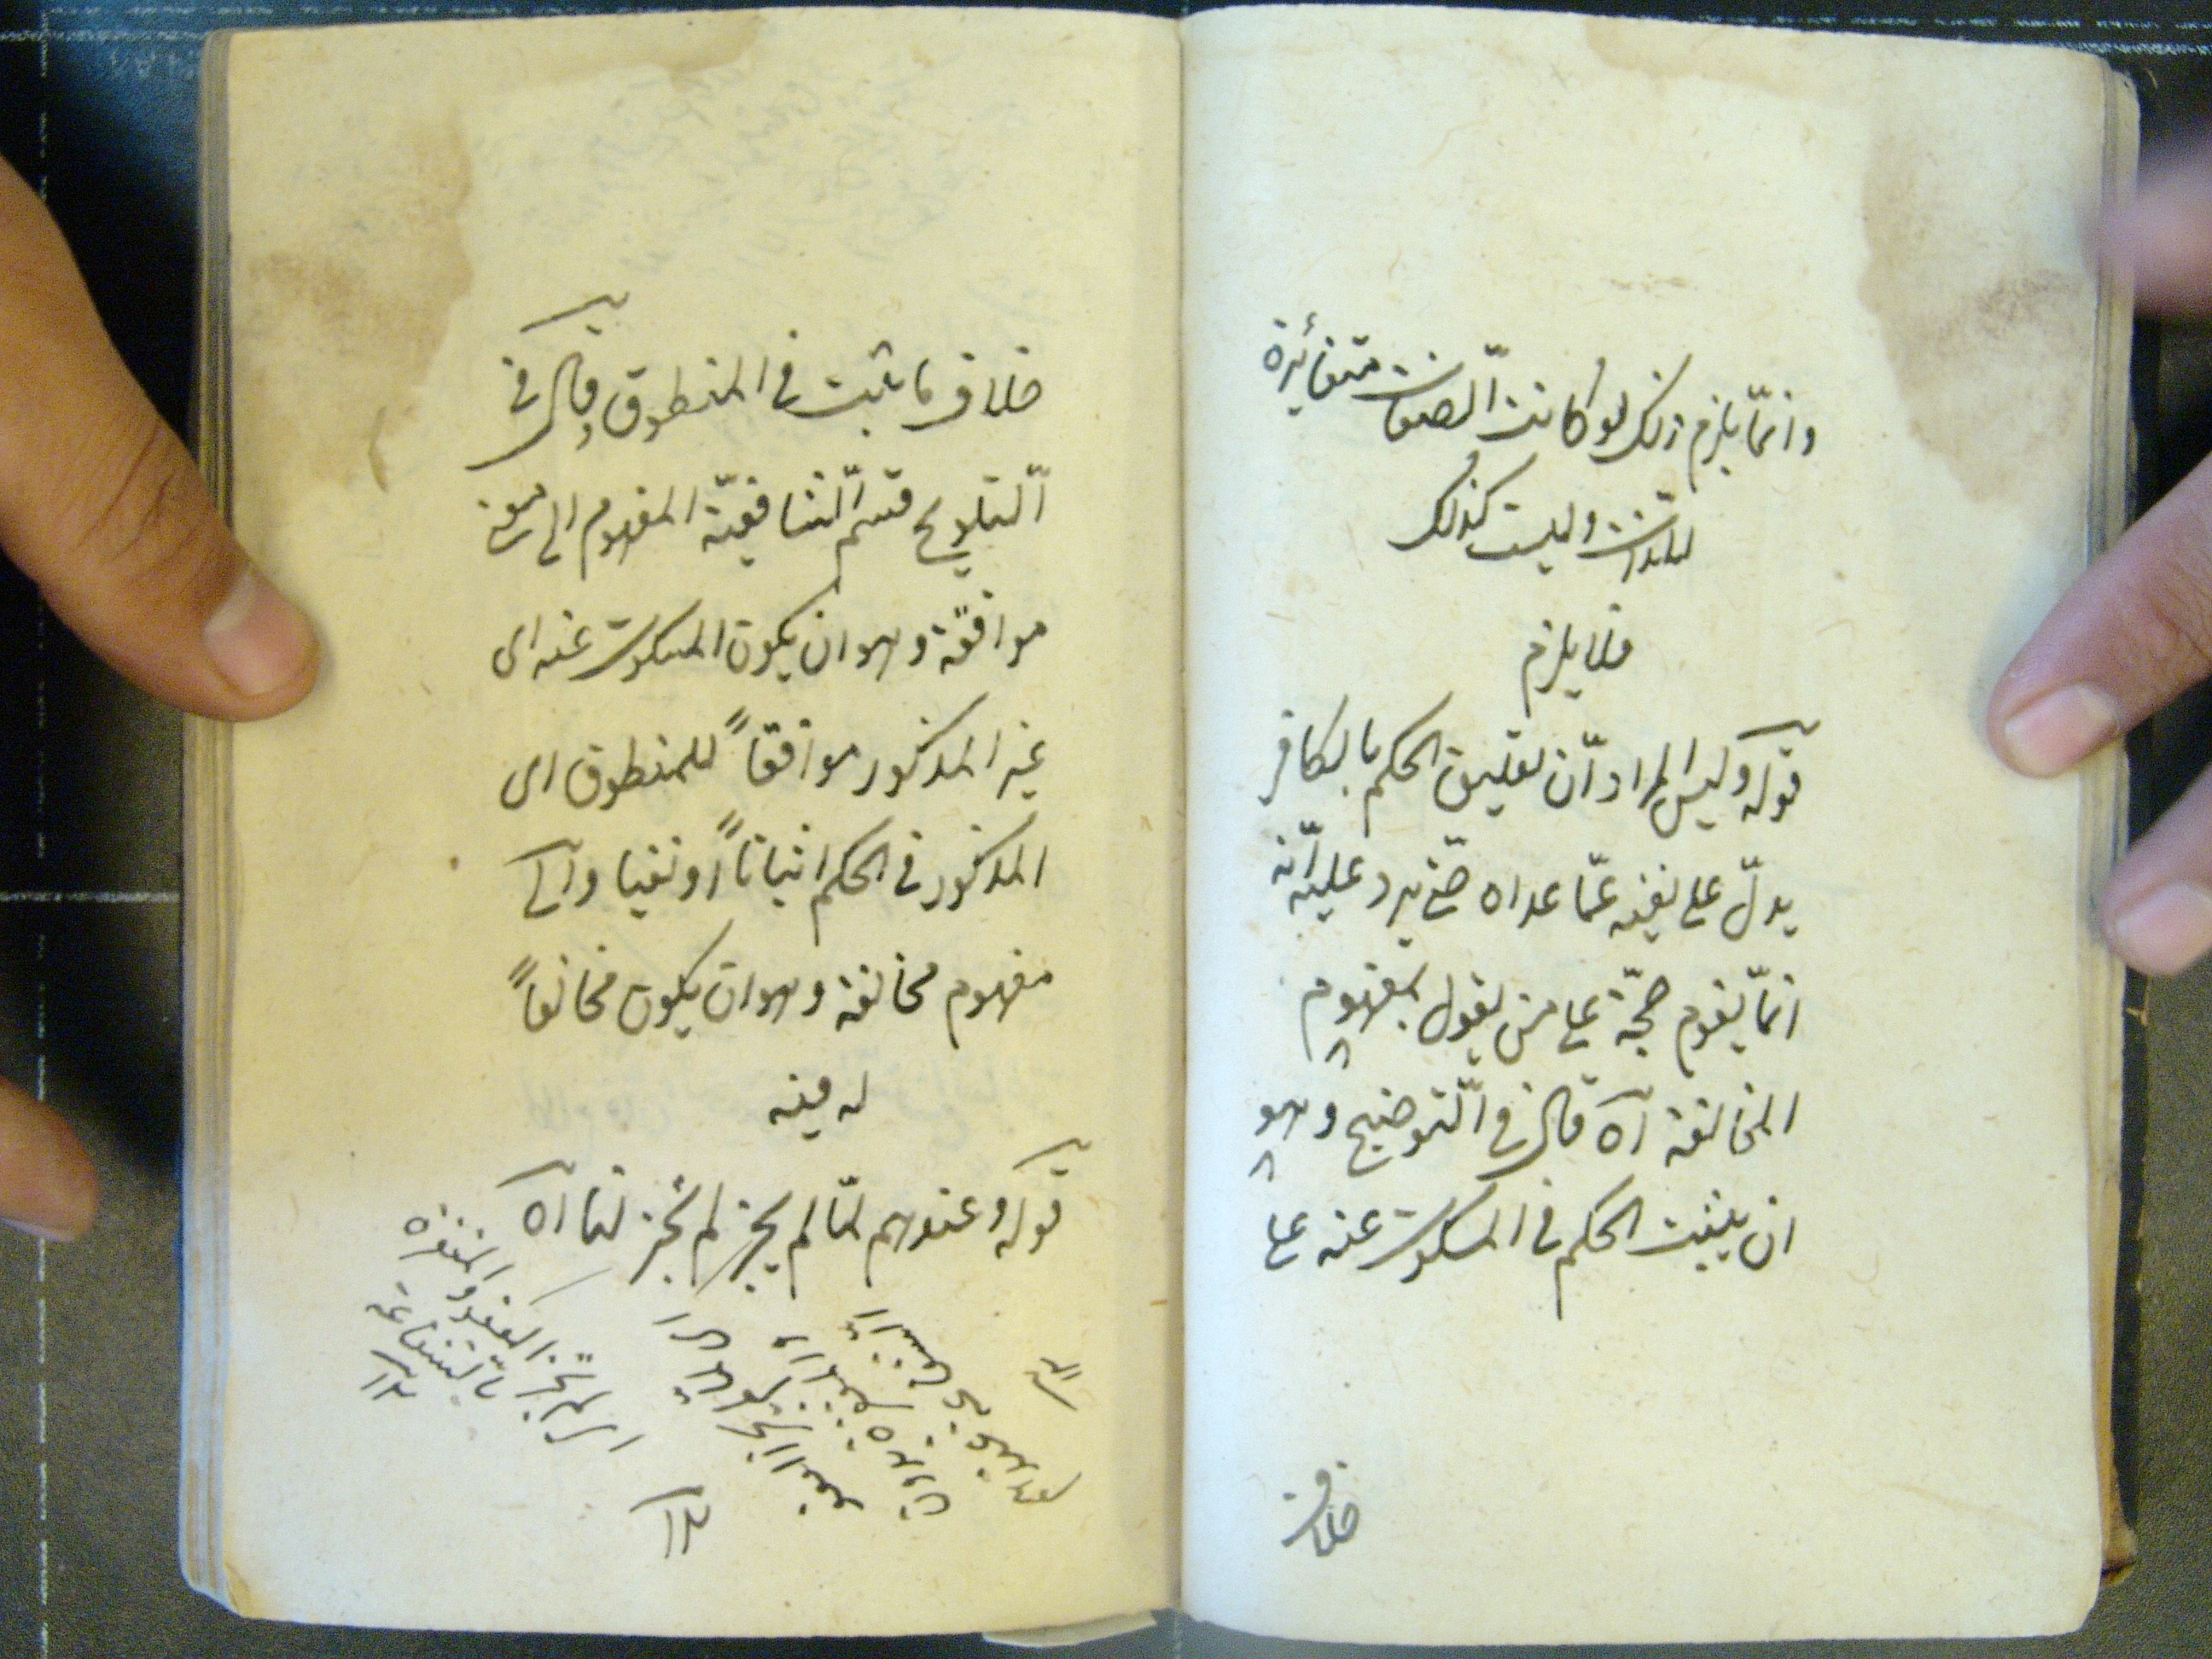 وانّما يلزم ذلك لو كانت الّصفات متغائرة
للذات وليست كذلك
فلا يلزم
قوله وليس المراد أنّ تعليق الحكم بالكافر
يدلّ على نفيه عمّا عداه حتّى يرد عليه أنّه
انّما يقوم حجّة على من يقول بمفهوم
المخالفة آه قال في الّتوضيح وهو
ان يثبت الحكم في المسكوت عنه على
خلاف
خلاف ما ثبت في المنطوق وقال في
الّتلويح قسّم الّشافعيّة المفهوم الى مفهوم
موافقة وهو ان يكون المسكوت عنه اى
غير المذكور موافقاً للمنطوق اى
المذكور في الحكم اثباتاً او نفيا والى
مفهوم مخالفة وهو ان يكون مخالفاً
له فيه
قوله وعندهم لمّا لم يجز لم يجز لنا آه
اى لم تجز العفو والمغفرة
بالّشفاعة